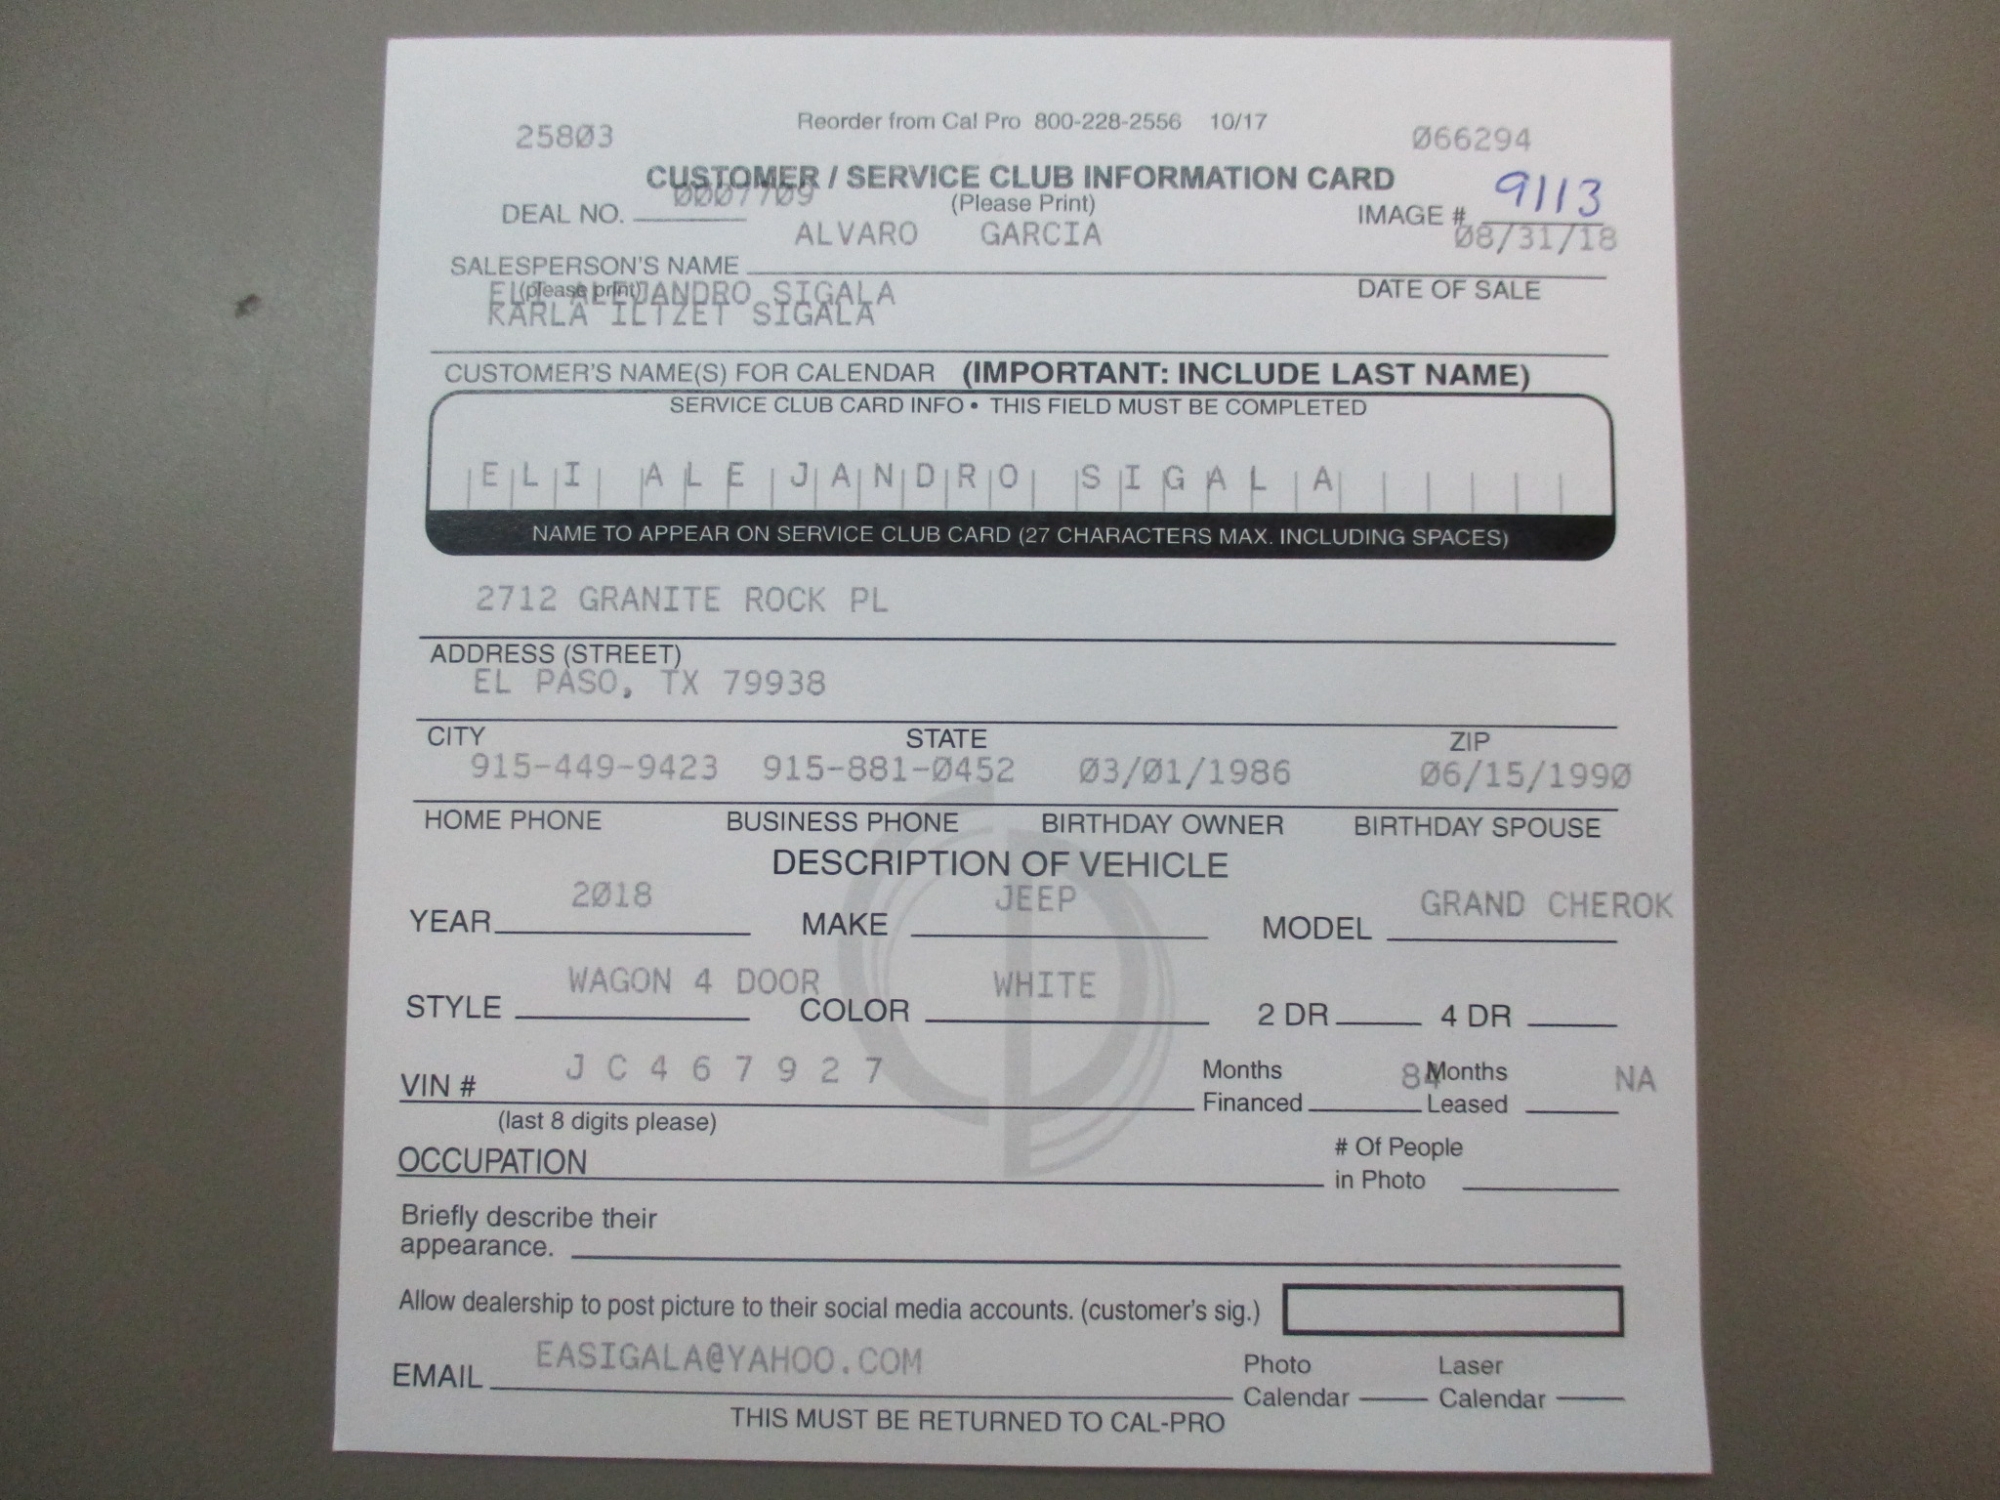 Reorder from Cal Pro 800-228-2556 10/17
25803 066294
CUSTOMER / SERVICE CLUB INFORMATION CARD
0007709 9113
DEAL NO. (Please Print) IMAGE #
ALVARO GARCIA 08/31/18
SALESPERSON'S NAME
(please print) DATE OF SALE
ELI ALEJANDRO SIGALA
KARLA ILTZET SIGALA
CUSTOMER'S NAME(S) FOR CALENDAR (IMPORTANT: INCLUDE LAST NAME)
SERVICE CLUB CARD INFO • THIS FIELD MUST BE COMPLETED
ELI ALEJANDRO SIGALA
NAME TO APPEAR ON SERVICE CLUB CARD (27 CHARACTERS MAX. INCLUDING SPACES)
2712 GRANITE ROCK PL
ADDRESS (STREET)
EL PASO, TX 79938
CITY STATE ZIP
915-449-9423 915-881-0452 03/01/1986 06/15/1990
HOME PHONE BUSINESS PHONE BIRTHDAY OWNER BIRTHDAY SPOUSE
DESCRIPTION OF VEHICLE
2018 JEEP GRAND CHEROK
YEAR MAKE MODEL
WAGON 4 DOOR WHITE
STYLE COLOR 2 DR 4 DR
VIN # J C 4 6 7 9 2 7 Months Financed 84 Months Leased NA
(last 8 digits please)
OCCUPATION # Of People in Photo
Briefly describe their
appearance.
Allow dealership to post picture to their social media accounts. (customer's sig.)
EMAIL EASIGALA@YAHOO.COM Photo Calendar Laser Calendar
THIS MUST BE RETURNED TO CAL-PRO